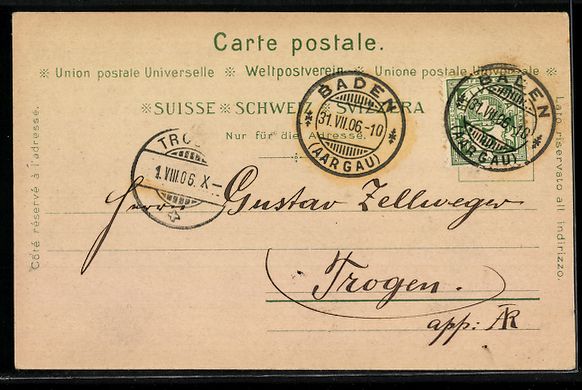 Carte postale.
※ Union postale Universelle ※ Weltpostverein ※ Unione postale Universale ※
※SUISSE※SCHWEIZ※SVIZZERA
Nur für die Adresse.
Côté réservé à l'adresse.
Lato riservato all indirizzo.
BADEN
31.VII.06.-10
(AARGAU)
BADEN
31.VII.06.-10
(AARGAU)
TROG
1.VIII.06.X-
Herrn Gustav Zellweger
Trogen.
app: AR